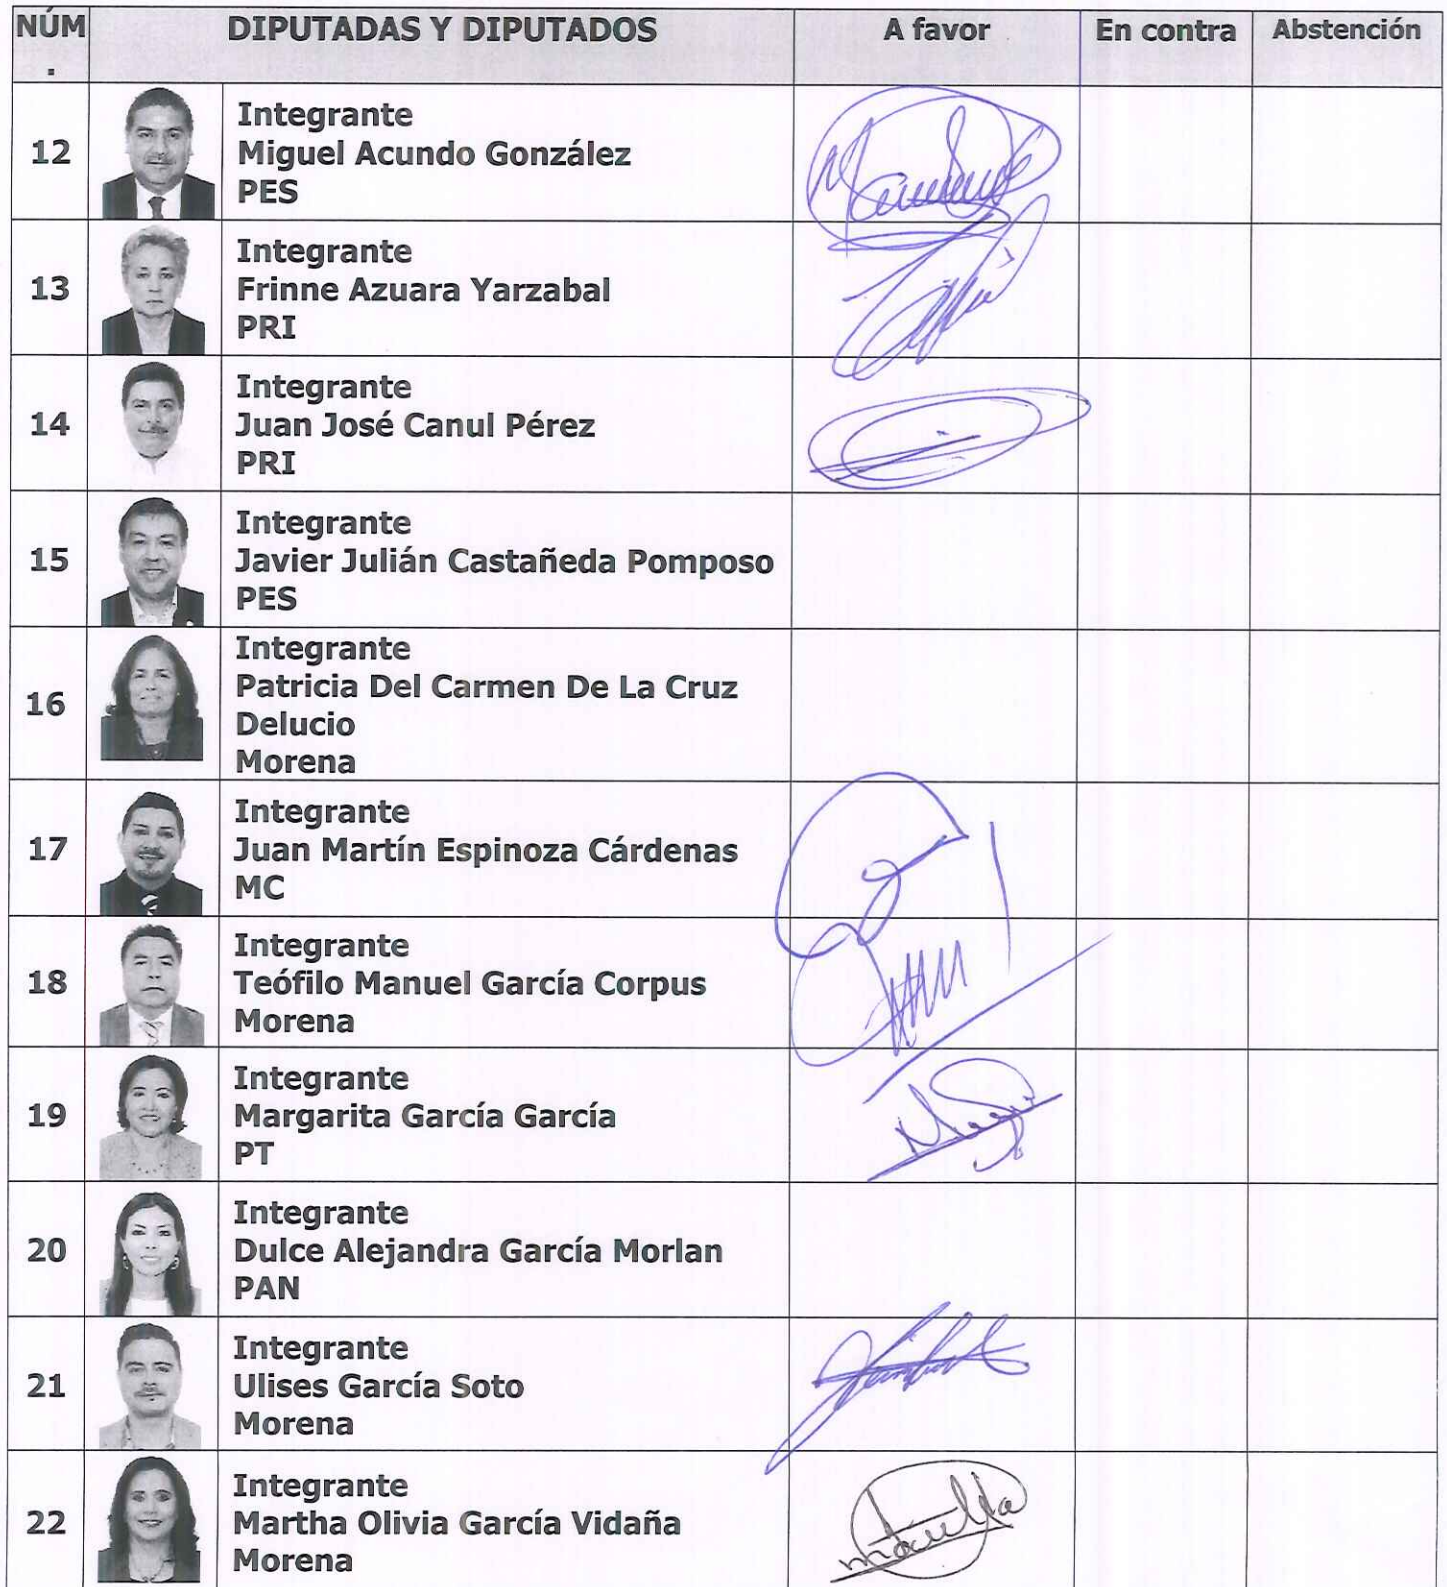 NÚM. DIPUTADAS Y DIPUTADOS A favor En contra Abstención
12
Integrante
Miguel Acundo González
PES
13
Integrante
Frinne Azuara Yarzabal
PRI
14
Integrante
Juan José Canul Pérez
PRI
15
Integrante
Javier Julián Castañeda Pomposo
PES
16
Integrante
Patricia Del Carmen De La Cruz
Delucio
Morena
17
Integrante
Juan Martín Espinoza Cárdenas
MC
18
Integrante
Teófilo Manuel García Corpus
Morena
19
Integrante
Margarita García García
PT
20
Integrante
Dulce Alejandra García Morlan
PAN
21
Integrante
Ulises García Soto
Morena
22
Integrante
Martha Olivia García Vidaña
Morena